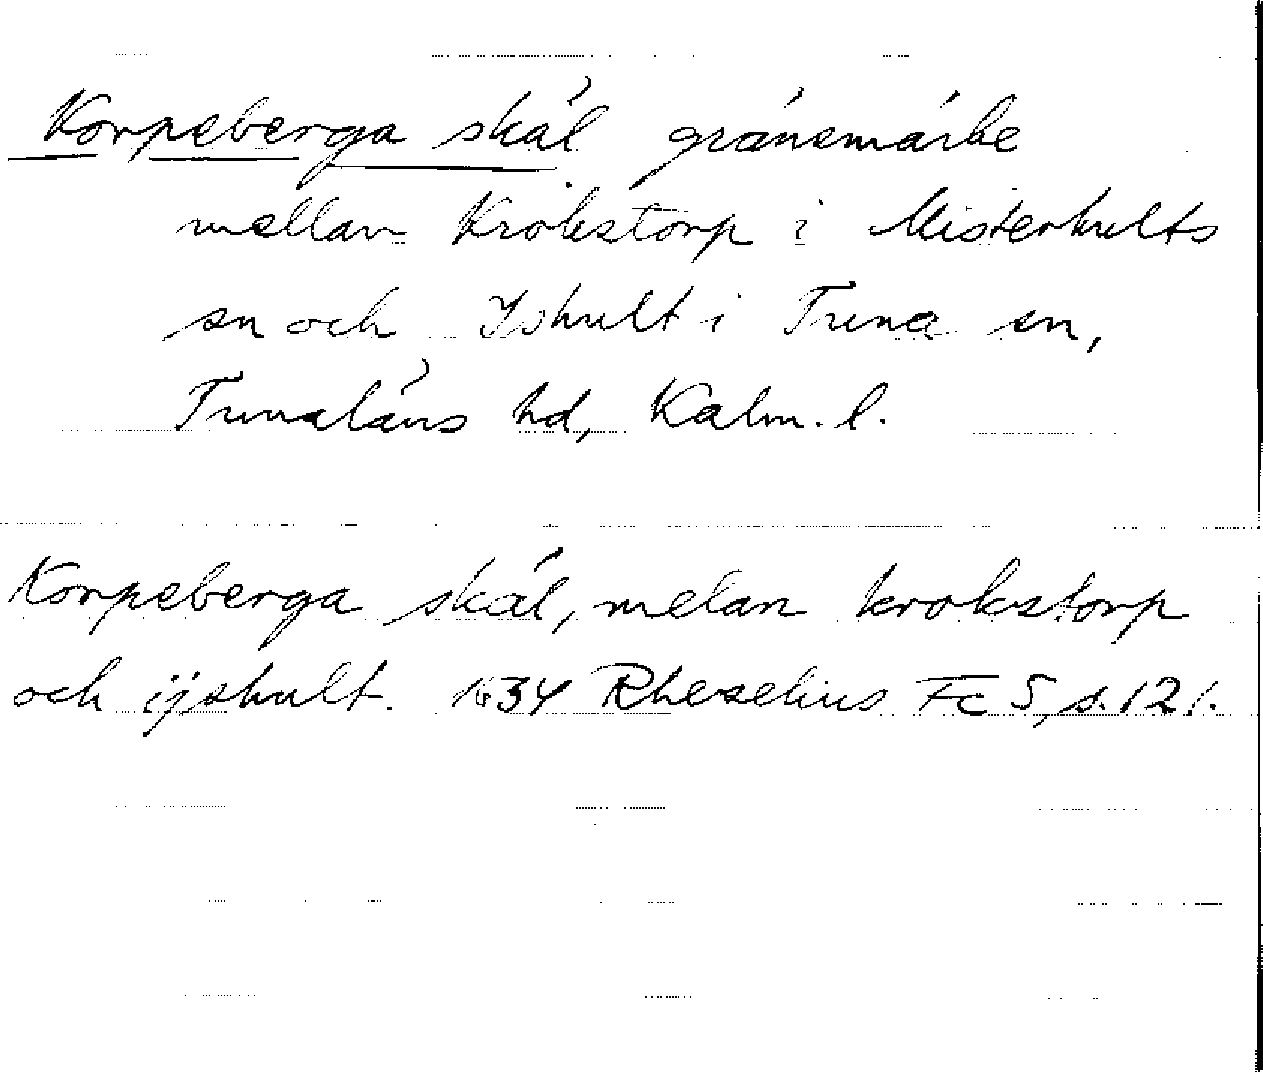 Korpeberga skål gränsmärke
mellan Krokstorp i Misterhults
sn och Ishult i Tuna sn,
Tunaläns hd, Kalm. l.
Korpeberga skål, melan krokstorp
och ijshult. 1634 Rhezelius Fc 5, s. 121.